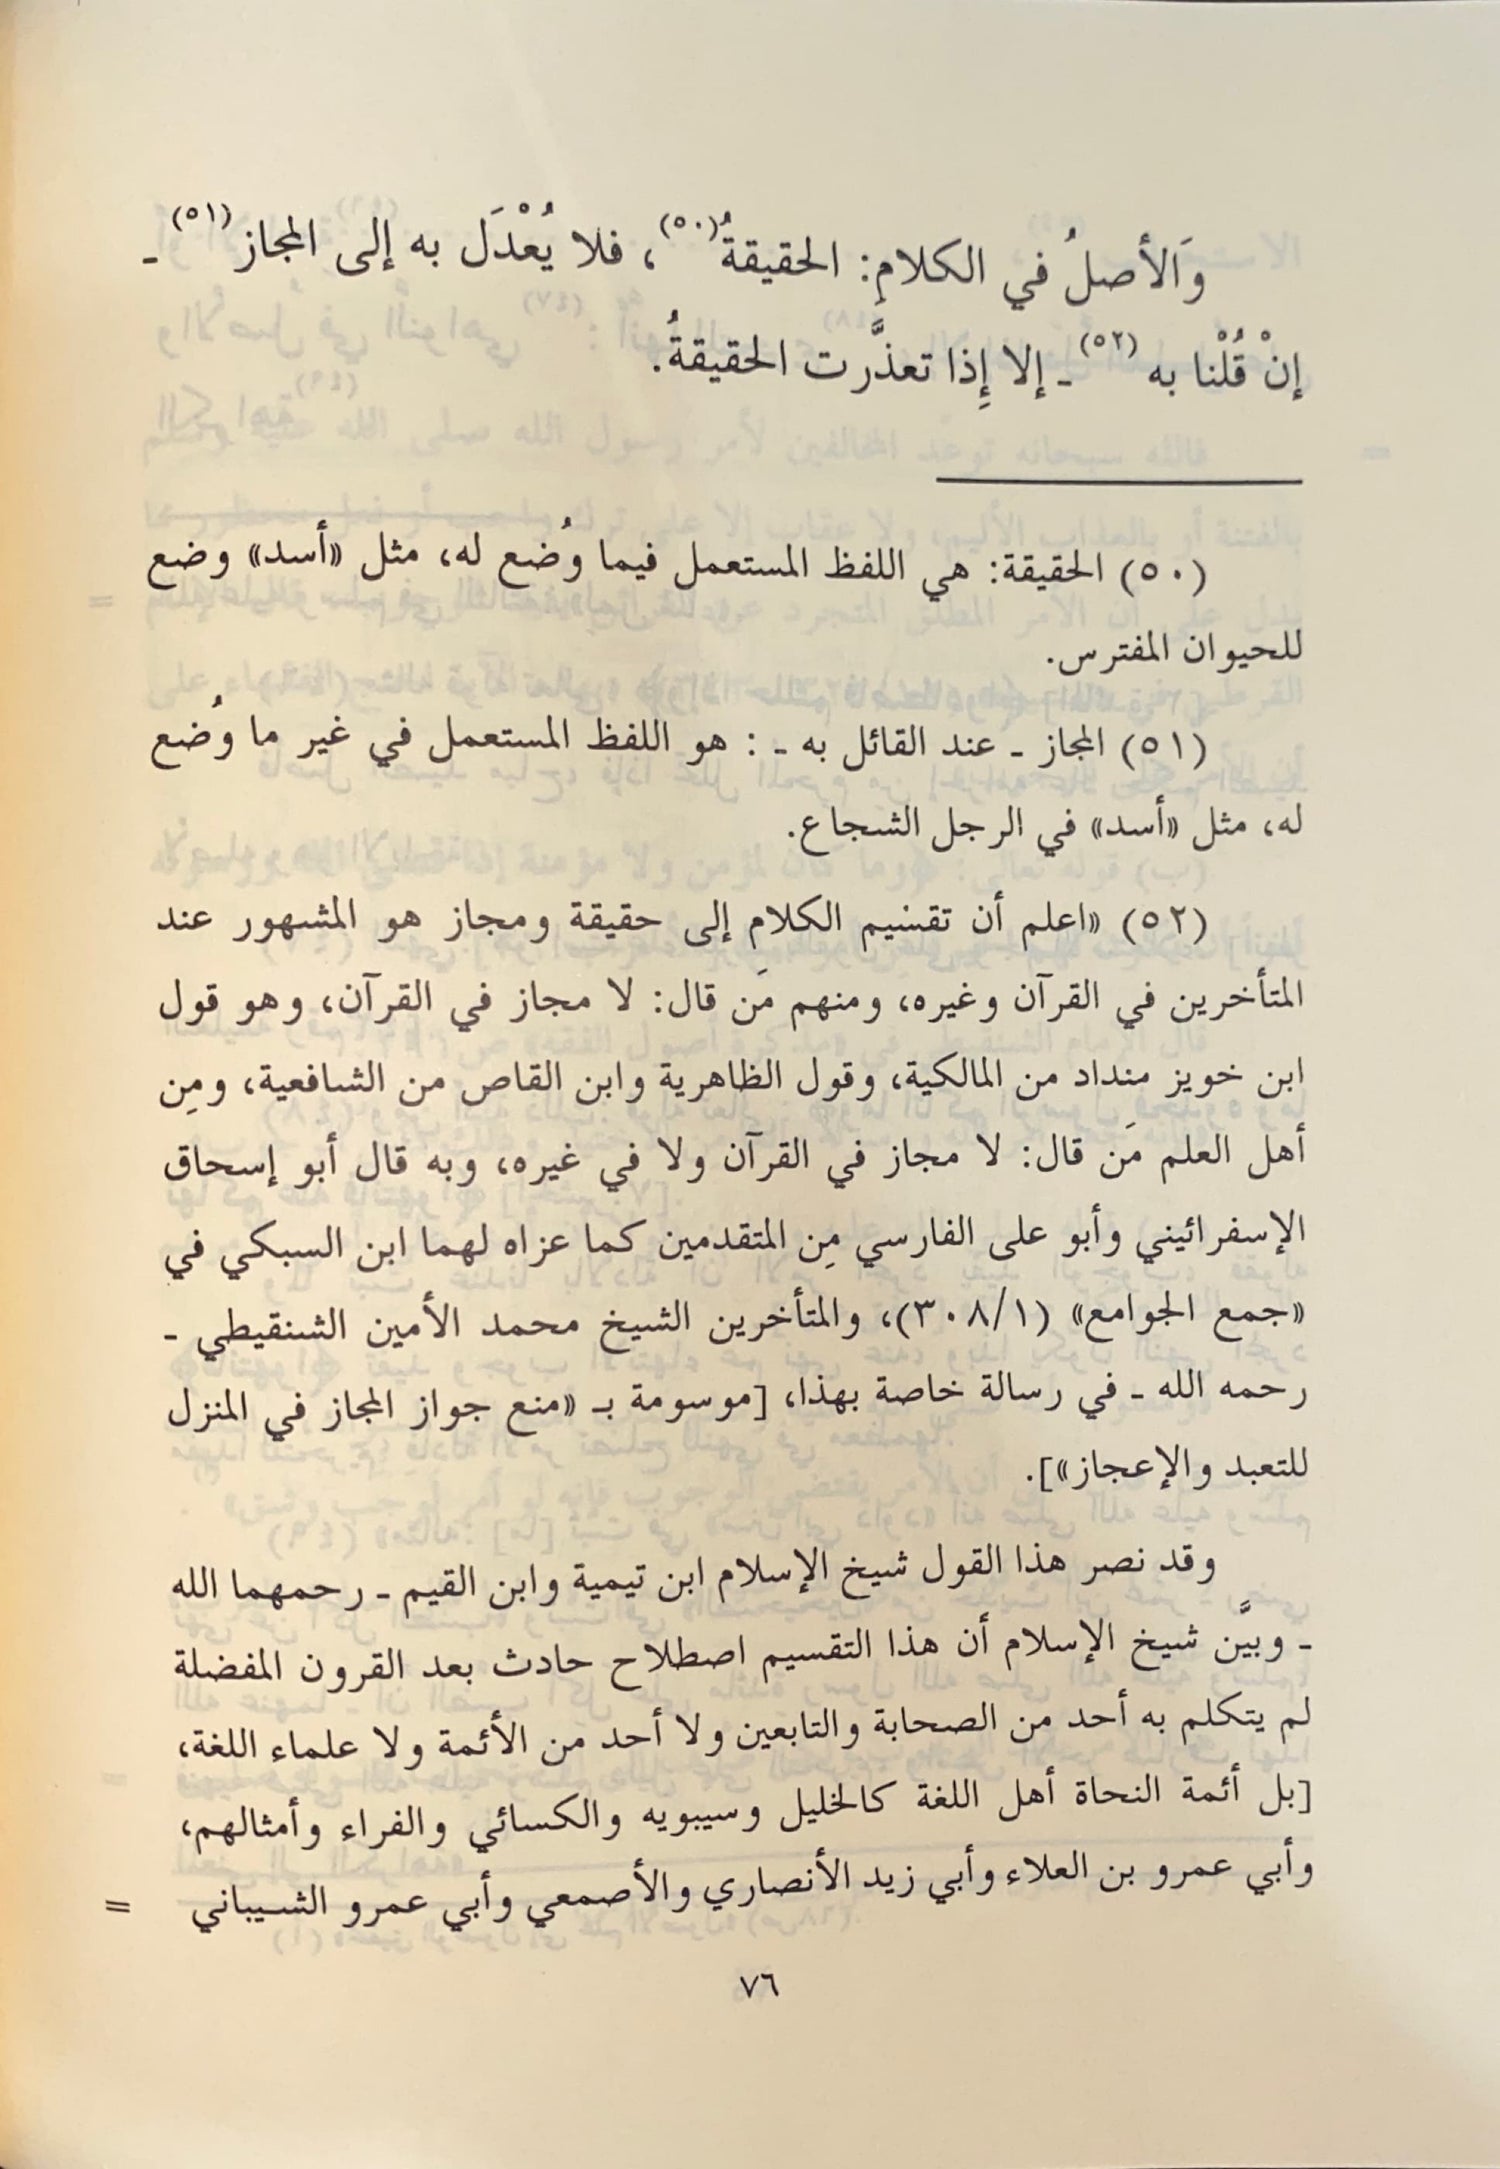 وَالأصلُ في الكلامِ: الحقيقةُ(٥٠)، فلا يُعْدَل به إلى المجاز(٥١) ـ
إنْ قُلْنا به(٥٢) ـ إلا إِذا تعذَّرت الحقيقةُ.
(٥٠) الحقيقة: هي اللفظ المستعمل فيما وُضع له، مثل «أسد» وضع
للحيوان المفترس.
(٥١) المجاز ـ عند القائل به ـ : هو اللفظ المستعمل في غير ما وُضع
له، مثل «أسد» في الرجل الشجاع.
(٥٢) «اعلم أن تقسيم الكلام إلى حقيقة ومجاز هو المشهور عند
المتأخرين في القرآن وغيره، ومنهم مَن قال: لا مجاز في القرآن، وهو قول
ابن خويز منداد من المالكية، وقول الظاهرية وابن القاص من الشافعية، ومِن
أهل العلم مَن قال: لا مجاز في القرآن ولا في غيره، وبه قال أبو إسحاق
الإسفرائيني وأبو على الفارسي مِن المتقدمين كما عزاه لهما ابن السبكي في
«جمع الجوامع» (٣٠٨/١)، والمتأخرين الشيخ محمد الأمين الشنقيطي ـ
رحمه الله ـ في رسالة خاصة بهذا، [موسومة بـ «منع جواز المجاز في المنزل
للتعبد والإعجاز»].
وقد نصر هذا القول شيخ الإسلام ابن تيمية وابن القيم ـ رحمهما الله
ـ وبيَّن شيخ الإسلام أن هذا التقسيم اصطلاح حادث بعد القرون المفضلة
لم يتكلم به أحد من الصحابة والتابعين ولا أحد من الأئمة ولا علماء اللغة،
[بل أئمة النحاة أهل اللغة كالخليل وسيبويه والكسائي والفراء وأمثالهم،
وأبي عمرو بن العلاء وأبي زيد الأنصاري والأصمعي وأبي عمرو الشيباني =
٧٦